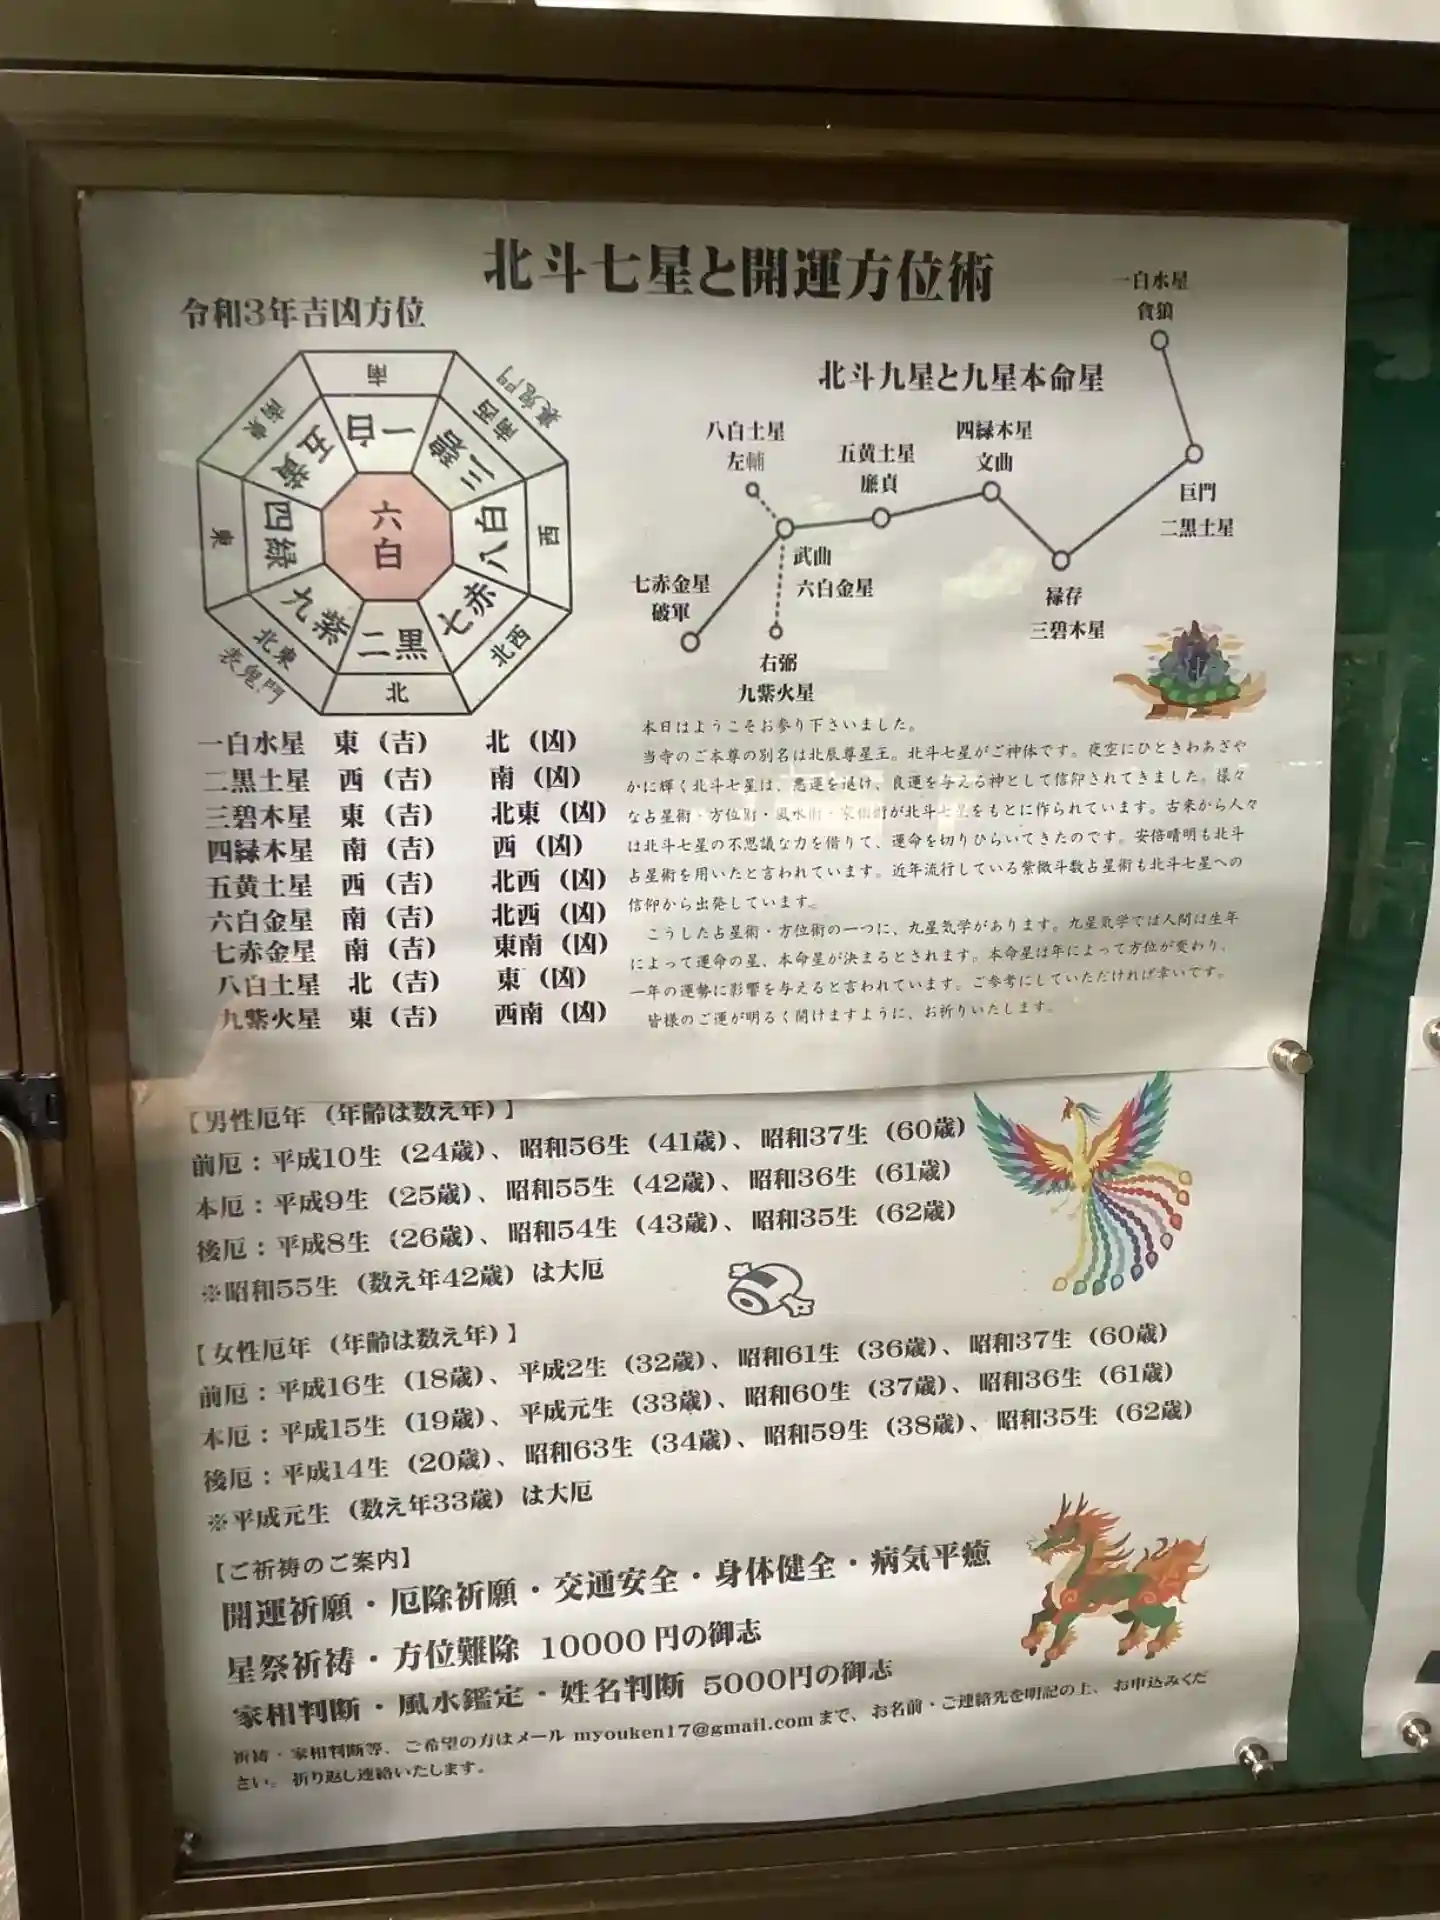 北斗七星と開運方位術
令和3年吉凶方位
南
南西
裏鬼門
西
北西
北
北東
表鬼門
東
南東
一白
三碧
八白
七赤
二黒
九紫
四緑
五黄
六白
北斗九星と九星本命星
一白水星
貪狼
巨門
二黒土星
禄存
三碧木星
四緑木星
文曲
五黄土星
廉貞
武曲
六白金星
八白土星
左輔
七赤金星
破軍
右弼
九紫火星
一白水星 東（吉） 北（凶）
二黒土星 西（吉） 南（凶）
三碧木星 東（吉） 北東（凶）
四緑木星 南（吉） 西（凶）
五黄土星 西（吉） 北西（凶）
六白金星 南（吉） 北西（凶）
七赤金星 南（吉） 東南（凶）
八白土星 北（吉） 東（凶）
九紫火星 東（吉） 西南（凶）
本日はようこそお参り下さいました。
当寺のご本尊の別名は北辰尊星王。北斗七星がご神体です。夜空にひときわあざや
かに輝く北斗七星は、悪運を退け、良運を与える神として信仰されてきました。様々
な占星術・方位術・風水術・家相術が北斗七星をもとに作られています。古来から人々
は北斗七星の不思議な力を借りて、運命を切りひらいてきたのです。安倍晴明も北斗
占星術を用いたと言われています。近年流行している紫微斗数占星術も北斗七星への
信仰から出発しています。
こうした占星術・方位術の一つに、九星気学があります。九星気学では人間は生年
によって運命の星、本命星が決まるとされます。本命星は年によって方位が変わり、
一年の運勢に影響を与えると言われています。ご参考にしていただければ幸いです。
皆様のご運が明るく開けますように、お祈りいたします。
【男性厄年（年齢は数え年）】
前厄：平成10生（24歳）、昭和56生（41歳）、昭和37生（60歳）
本厄：平成9生（25歳）、昭和55生（42歳）、昭和36生（61歳）
後厄：平成8生（26歳）、昭和54生（43歳）、昭和35生（62歳）
※昭和55生（数え年42歳）は大厄
【女性厄年（年齢は数え年）】
前厄：平成16生（18歳）、平成2生（32歳）、昭和61生（36歳）、昭和37生（60歳）
本厄：平成15生（19歳）、平成元生（33歳）、昭和60生（37歳）、昭和36生（61歳）
後厄：平成14生（20歳）、昭和63生（34歳）、昭和59生（38歳）、昭和35生（62歳）
※平成元生（数え年33歳）は大厄
【ご祈祷のご案内】
開運祈願・厄除祈願・交通安全・身体健全・病気平癒
星祭祈祷・方位難除 10000円の御志
家相判断・風水鑑定・姓名判断 5000円の御志
祈祷・家相判断等、ご希望の方はメール myouken17@gmail.comまで、お名前・ご連絡先を明記の上、お申込みくだ
さい。折り返し連絡いたします。